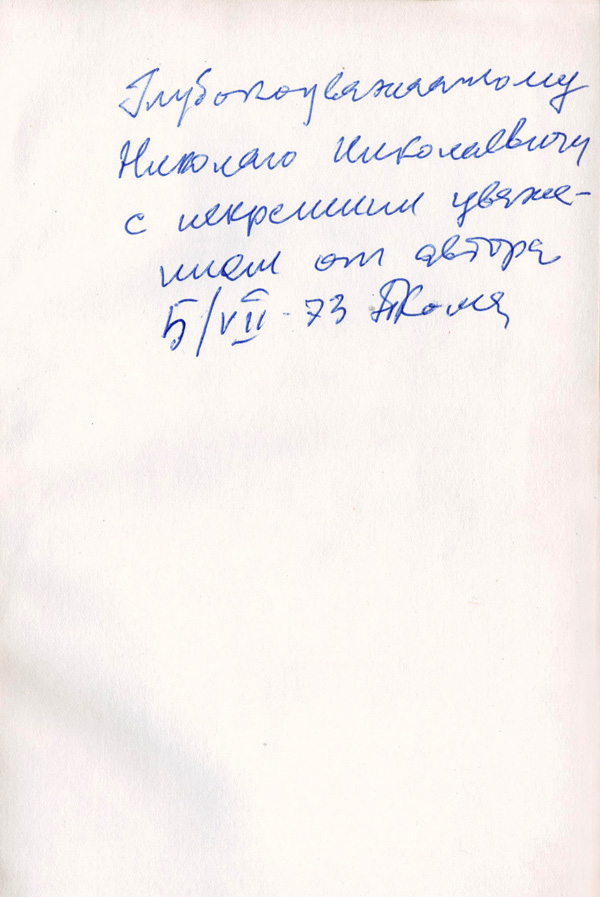 Глубокоуважаемому
Николаю Николаевичу
с искренним уваже-
нием от автора
5/VII-73